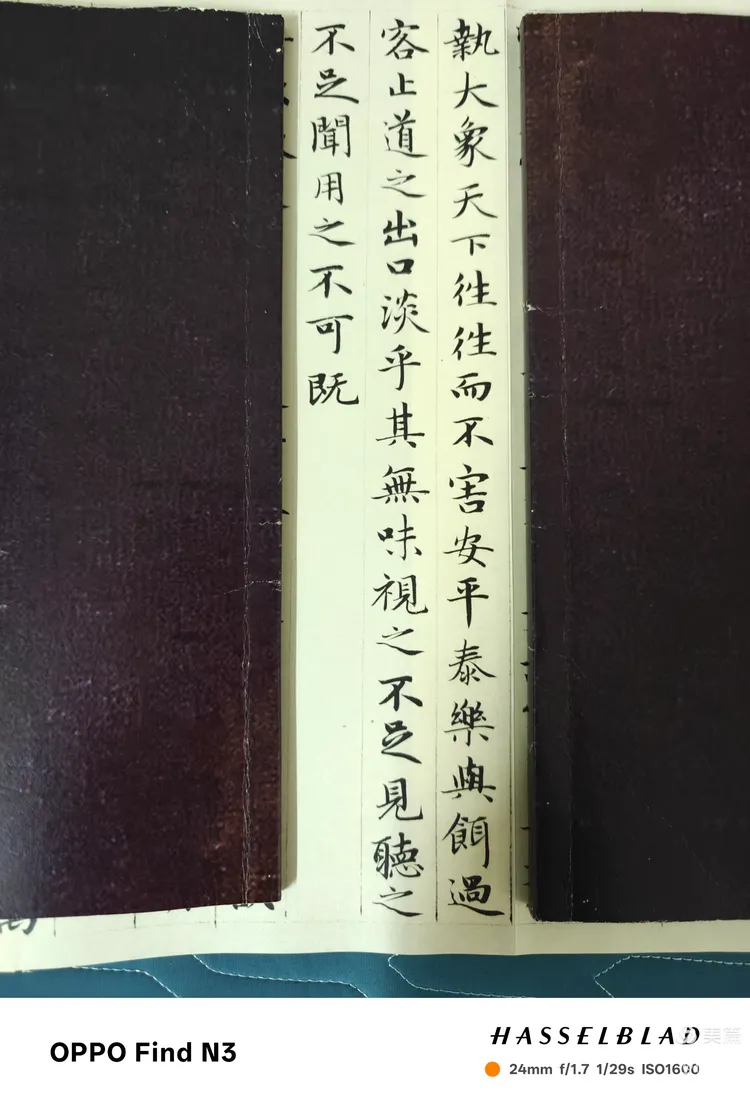 執大象天下徃徃而不害安平泰樂與餌過
客止道之出口淡乎其無味視之不足見聽之
不足聞用之不可既
OPPO Find N3
HASSELBLAD
24mm f/1.7 1/29s ISO1600
美篇